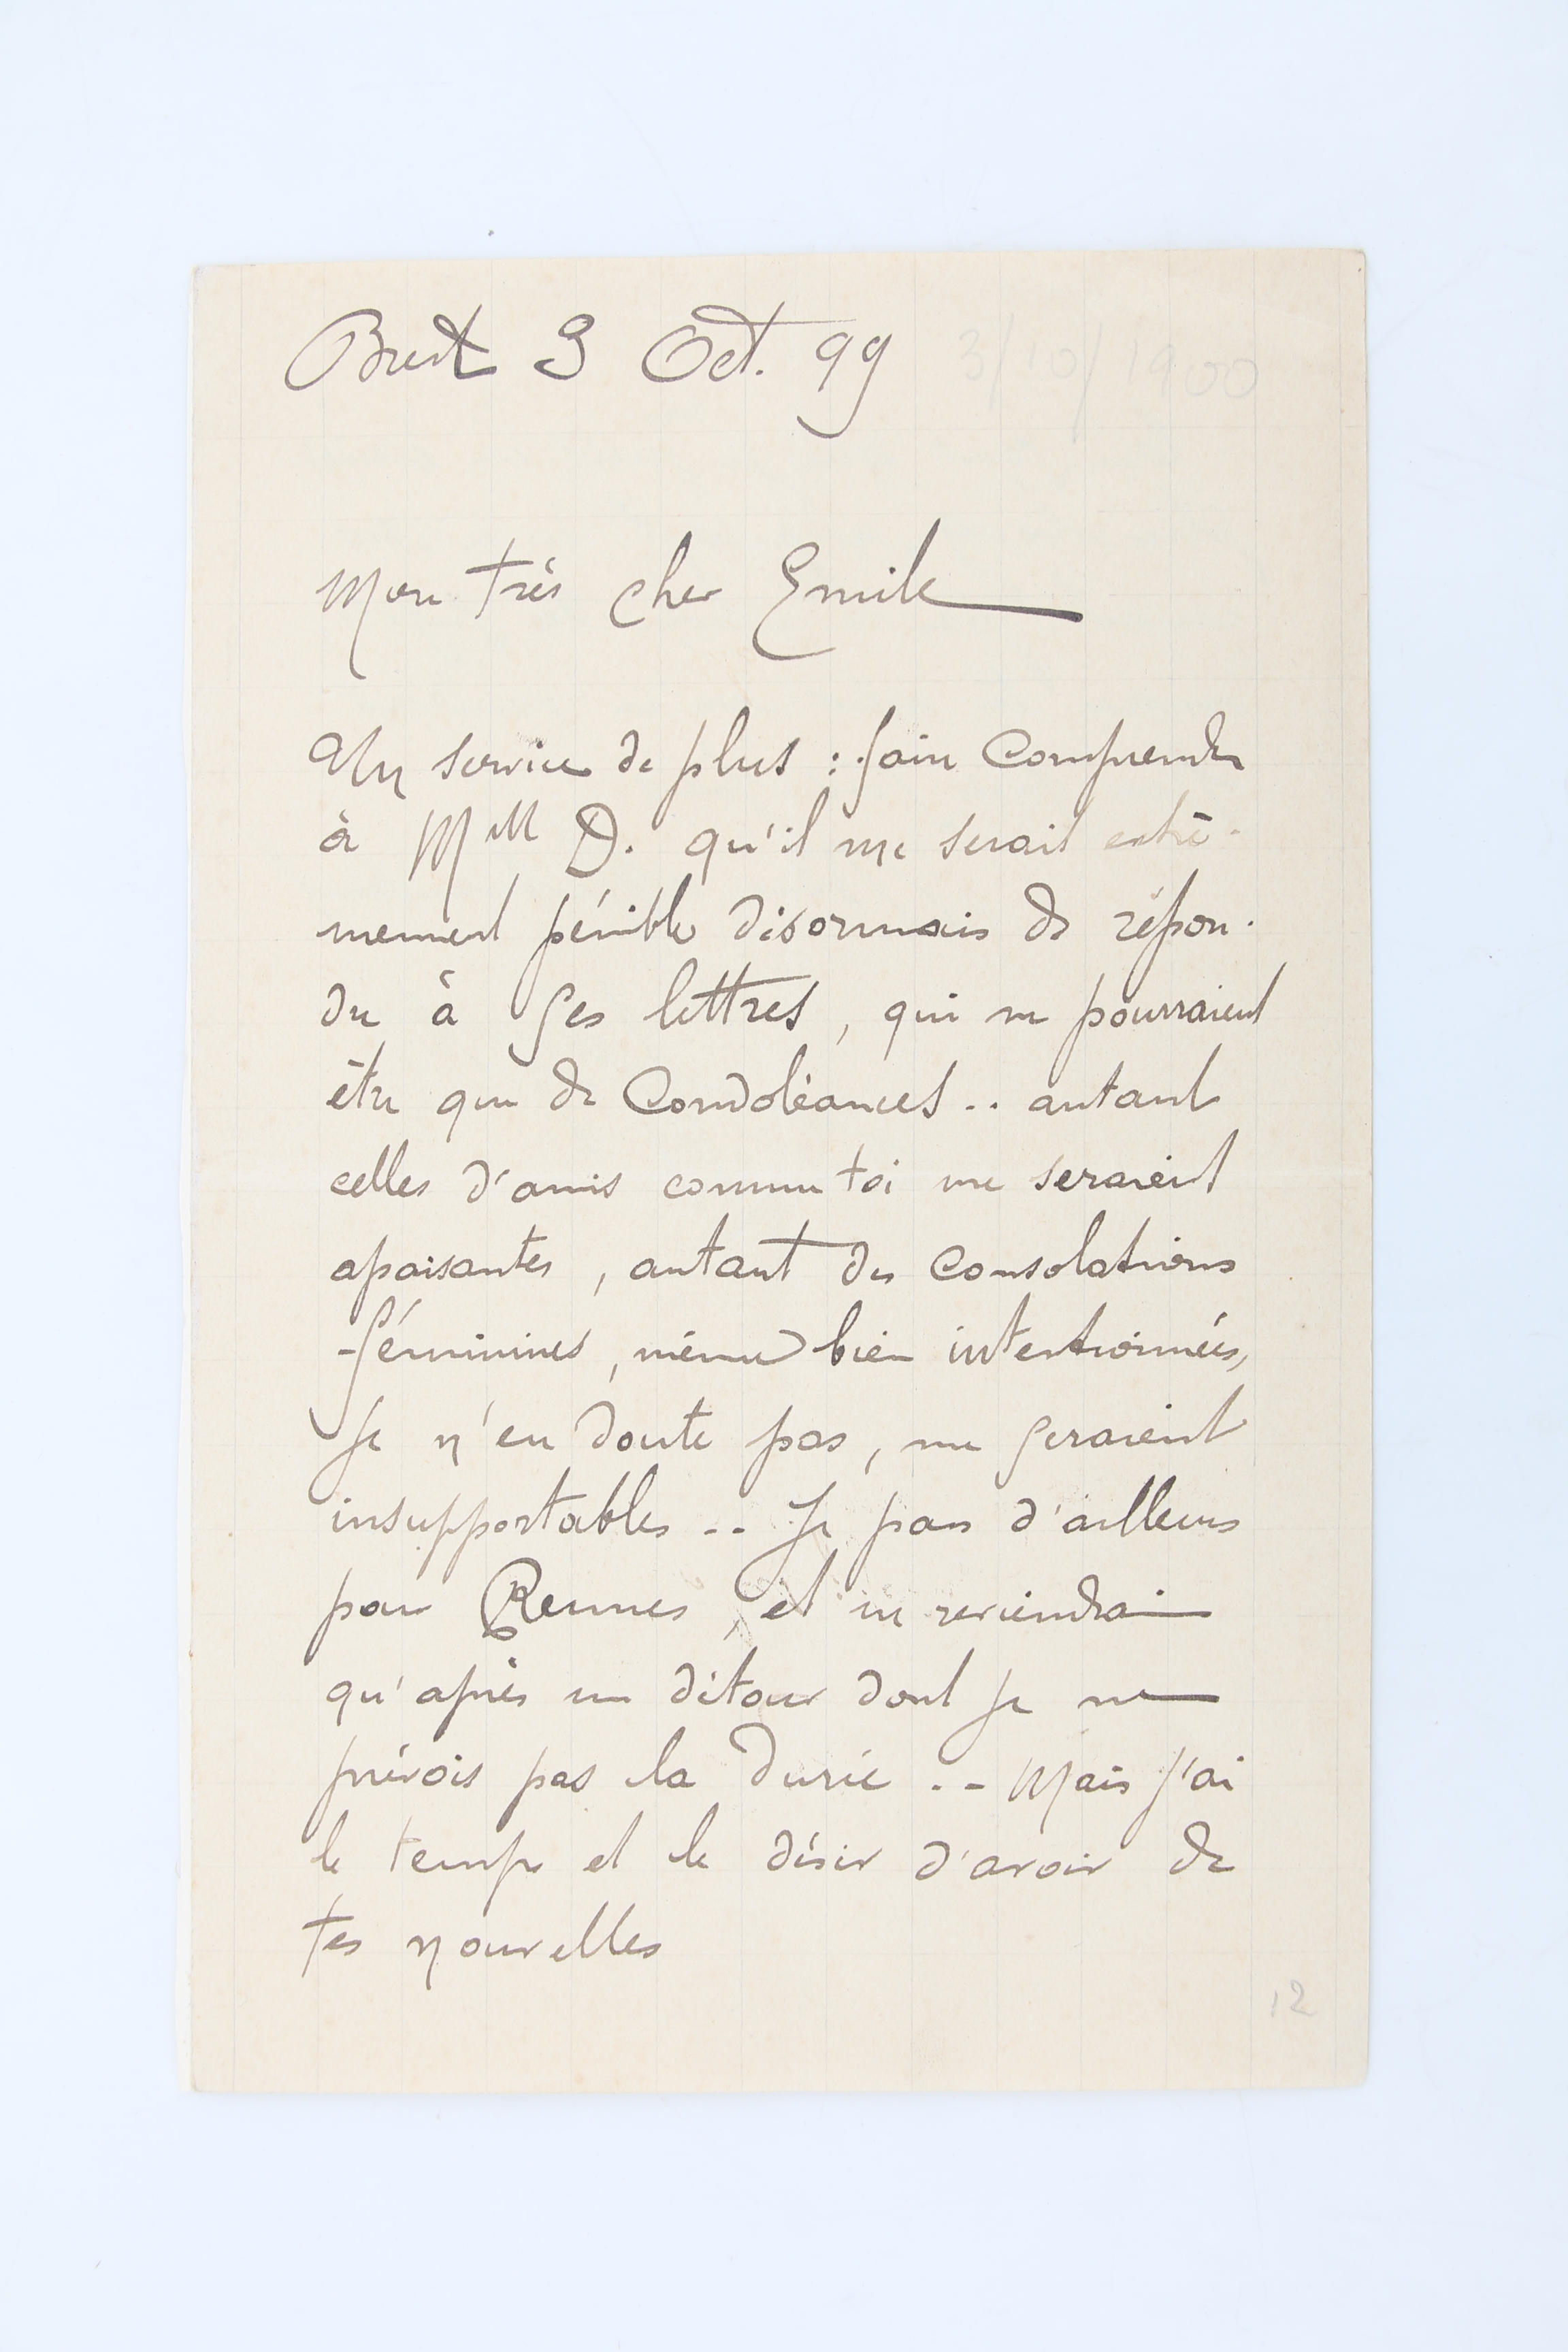 Brest 3 Oct. 99 3/10/1900
Mon très cher Emile
Un service de plus : faire comprendre
à Mlle D. qu'il me serait extrê-
mement pénible désormais de répon-
dre à ses lettres, qui ne pourraient
être que de condoléances .. autant
celles d'amis comme toi me seraient
apaisantes, autant des consolations
féminines, même bien intentionnées,
je n'en doute pas, me seraient
insupportables .. Je pars d'ailleurs
pour Rennes, et ne reviendrai
qu'après un détour dont je ne
prévois pas la durée .. Mais j'ai
le temps et le désir d'avoir de
tes nouvelles
12